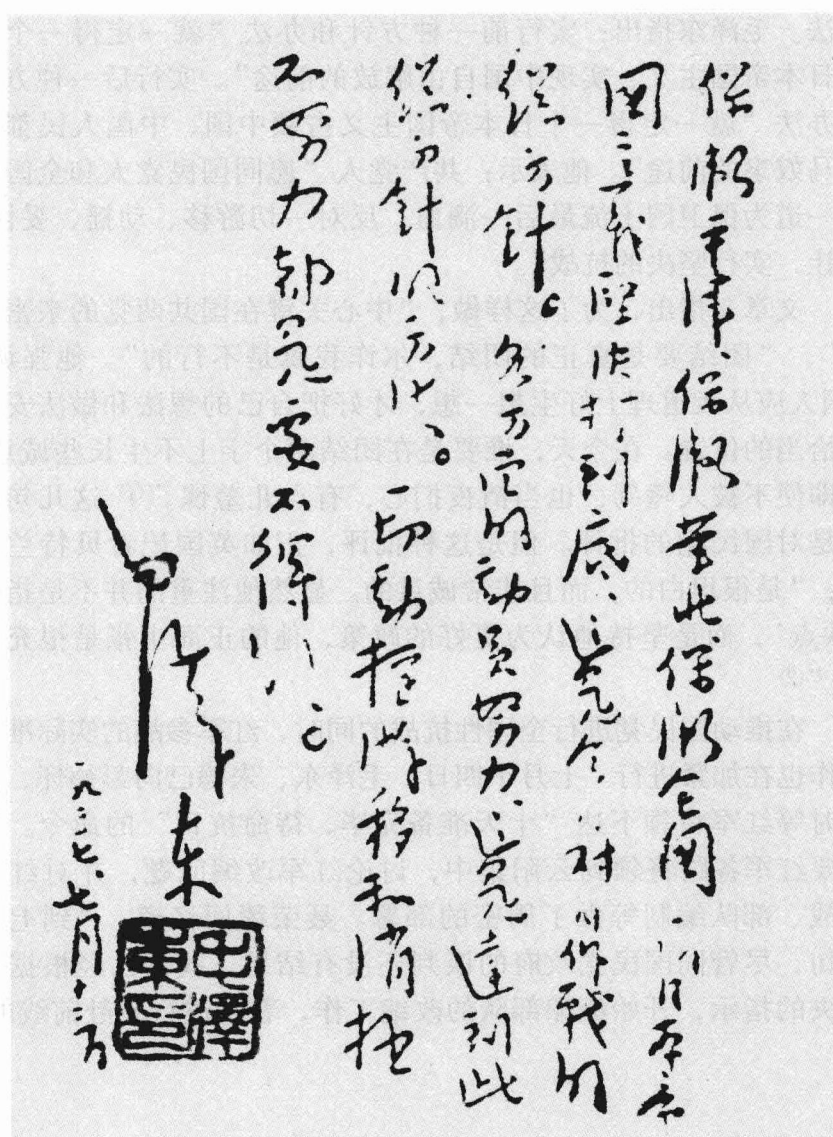 保衛平津、保衛華北、保衛全國、同日本帝
國主義堅決打到底、這是今日對日作戰的
總方針。各方面的動員努力、這是達到此
總方針的方法。一切動搖游移和消極
不努力都是要不得的。
毛澤東
一九三七、七月十三日
毛澤東印